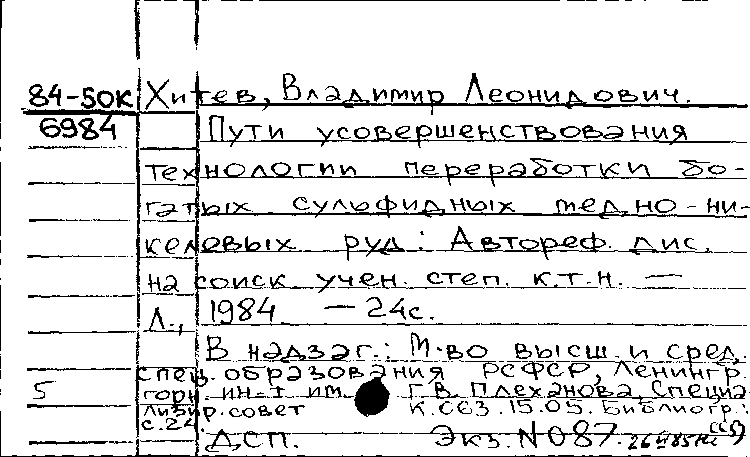 84-50К Хитев, Владимир Леонидович.
6984 Пути усовершенствования
технологии переработки бо-
гатых сульфидных медно-ни-
келевых руд: Автореф. дис.
на соиск. учен. степ. к.т.н. —
Л., 1984 — 24с.
В надзаг.: М-во высш. и сред.
спец. образования РСФСР, Ленингр.
5 горн. ин-т им. Г.В. Плеханова, Специа
лизир. совет К 063.15.05. Библиогр.:
с.24.
ДСП. Экз. N 087.